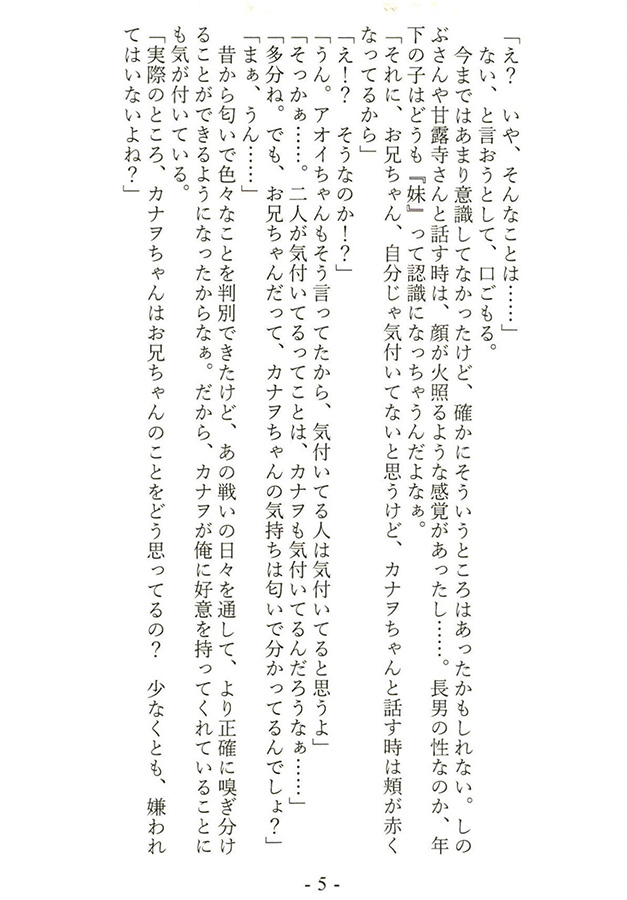 「え？　いや、そんなことは……」
ない、と言おうとして、口ごもる。
今まではあまり意識してなかったけど、確かにそういうところはあったかもしれない。しの
ぶさんや甘露寺さんと話す時は、顔が火照るような感覚があったし……。長男の性なのか、年
下の子はどうも『妹』って認識になっちゃうんだよなぁ。
「それに、お兄ちゃん、自分じゃ気付いてないと思うけど、カナヲちゃんと話す時は頬が赤く
なってるから」
「え！？　そうなのか！？」
「うん。アオイちゃんもそう言ってたから、気付いてる人は気付いてると思うよ」
「そっかぁ……。二人が気付いてるってことは、カナヲも気付いてるんだろうなぁ……」
「多分ね。でも、お兄ちゃんだって、カナヲちゃんの気持ちは匂いで分かってるんでしょ？」
「まぁ、うん……」
昔から匂いで色々なことを判別できたけど、あの戦いの日々を通して、より正確に嗅ぎ分け
ることができるようになったからなぁ。だから、カナヲが俺に好意を持ってくれていることに
も気が付いている。
「実際のところ、カナヲちゃんはお兄ちゃんのことをどう思ってるの？　少なくとも、嫌われ
てはいないよね？」
- 5 -